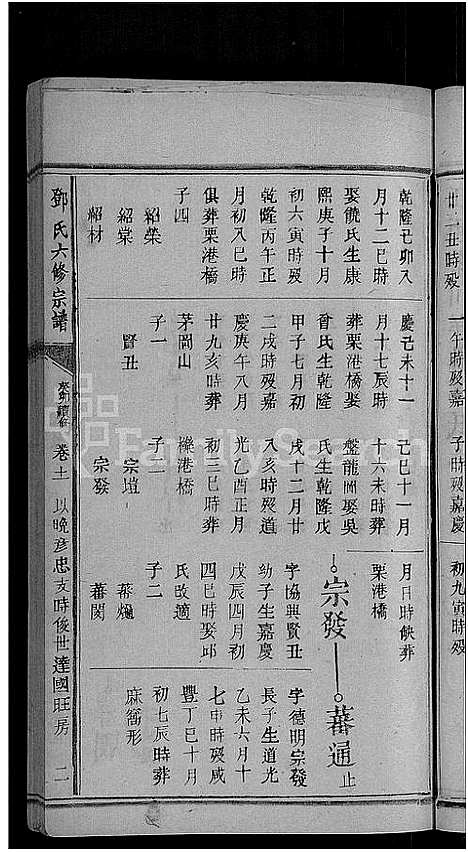 廿二丑時歿
一午時歿嘉
子時歿嘉慶
初九寅時歿
乾隆己卯八
月十二巳時
娶饒氏生康
熙庚子十月
初六寅時歿
乾隆丙午正
月初八巳時
俱葬栗港橋
子四
紹榮
紹棠
紹材
慶己未十一
月十七辰時
葬栗港橋娶
曾氏生乾隆
甲子七月初
二戌時歿嘉
慶庚午八月
廿九亥時葬
茅岡山
子一
賢丑
己巳十一月
十六未時葬
盤龍岡娶吳
氏生乾隆戊
戌十二月廿
八亥時歿道
光乙酉正月
初三巳時葬
櫟港橋
子二
宗塏
宗發
月日時缺葬
栗港橋
宗發
蕃通止
字協興賢丑
幼子生嘉慶
戊辰四月初
四巳時娶邱
氏改適
子二
蕃爔
蕃閔
字德明宗發
長子生道光
乙未六月十
七申時歿咸
豐丁巳十月
初七辰時葬
麻篛形
鄧氏六修宗譜
卷十一
以晚彥忠支時俊世達國旺房
二
FamilySearch